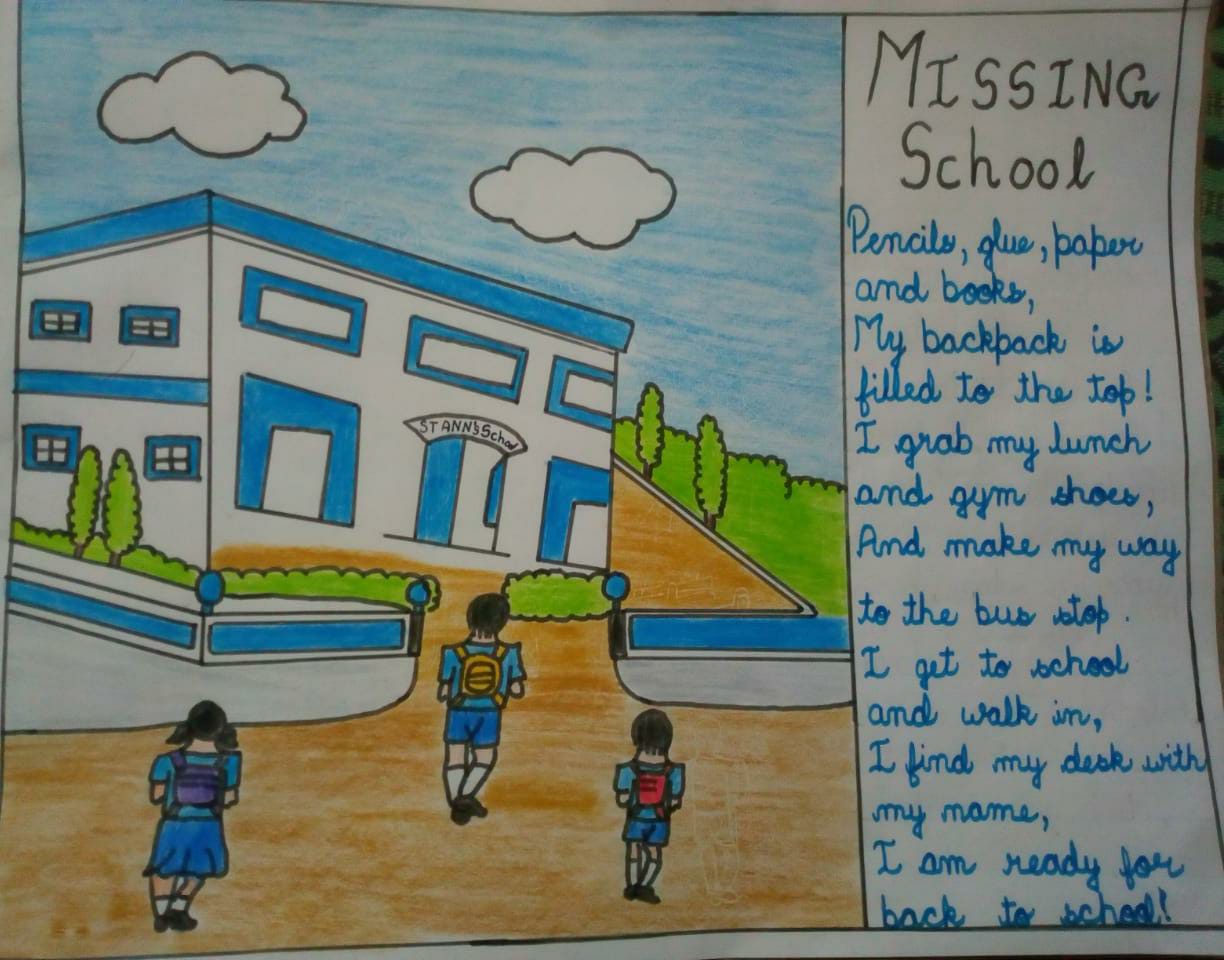 ST ANN's School
MISSING
School
Pencils, glue, paper
and books,
My backpack is
filled to the top!
I grab my lunch
and gym shoes,
And make my way
to the bus stop.
I get to school
and walk in,
I find my desk with
my name,
I am ready for
back to school!